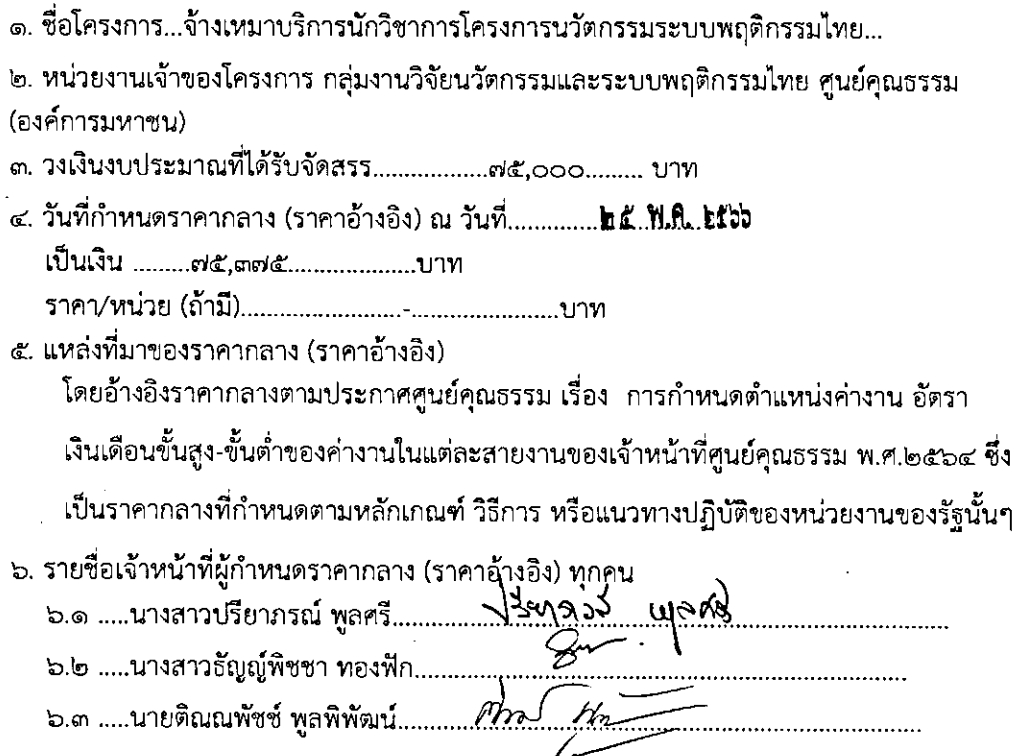 ๑. ชื่อโครงการ...จ้างเหมาบริการนักวิชาการโครงการนวัตกรรมระบบพฤติกรรมไทย...
๒. หน่วยงานเจ้าของโครงการ กลุ่มงานวิจัยนวัตกรรมและระบบพฤติกรรมไทย ศูนย์คุณธรรม
(องค์การมหาชน)
๓. วงเงินงบประมาณที่ได้รับจัดสรร.................๗๕,๐๐๐......... บาท
๔. วันที่กำหนดราคากลาง (ราคาอ้างอิง) ณ วันที่..............๒๕ พ.ค. ๒๕๖๖
เป็นเงิน .........๗๕,๓๗๕...................บาท
ราคา/หน่วย (ถ้ามี)........................-.......................บาท
๕. แหล่งที่มาของราคากลาง (ราคาอ้างอิง)
โดยอ้างอิงราคากลางตามประกาศศูนย์คุณธรรม เรื่อง การกำหนดตำแหน่งค่างาน อัตรา
เงินเดือนขั้นสูง-ขั้นต่ำของค่างานในแต่ละสายงานของเจ้าหน้าที่ศูนย์คุณธรรม พ.ศ.๒๕๖๔ ซึ่ง
เป็นราคากลางที่กำหนดตามหลักเกณฑ์ วิธีการ หรือแนวทางปฏิบัติของหน่วยงานของรัฐนั้นๆ
๖. รายชื่อเจ้าหน้าที่ผู้กำหนดราคากลาง (ราคาอ้างอิง) ทุกคน
๖.๑ .....นางสาวปรียาภรณ์ พูลศรี............ปรียาภรณ์ พูลศรี..............................
๖.๒ .....นางสาวธัญญ์พิชชา ทองฟัก..........................................................................
๖.๓ .....นายติณณพัชช์ พูลพิพัฒน์..............................................................................